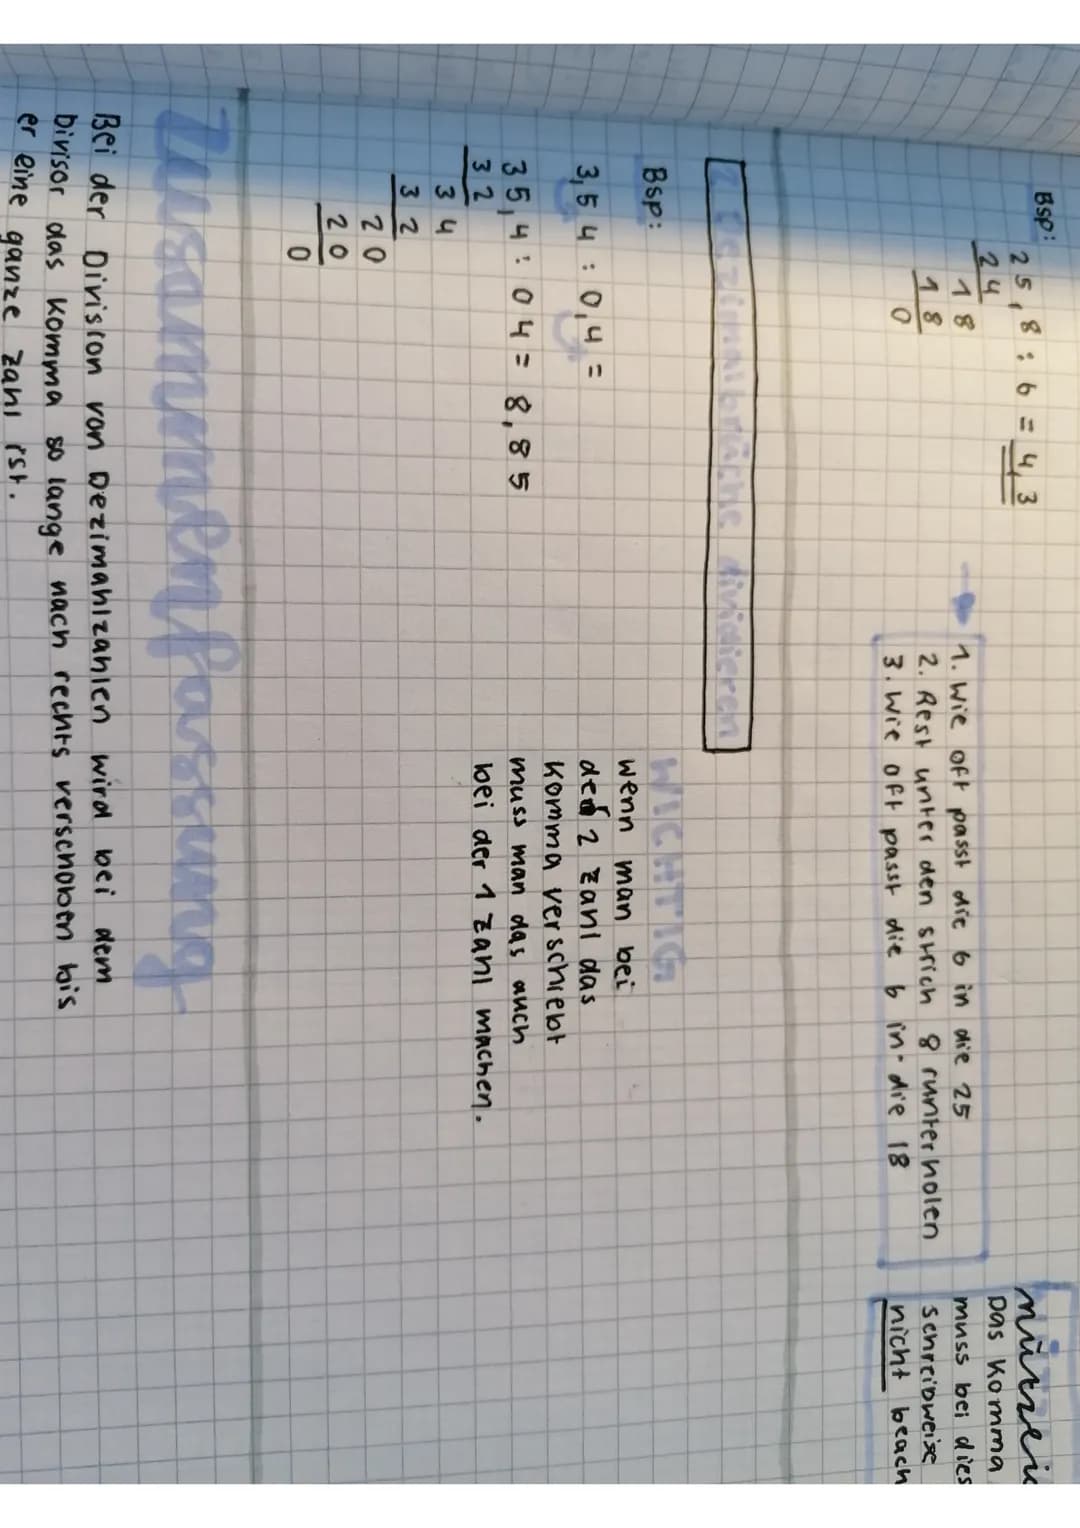 Bsp:
25,8 : 6 = 4,3
24
18
18
0
1. Wie oft passt die 6 in die 25
2. Rest unter den strich 8 runterholen
3. Wie oft passt die 6 in die 18
Das Komma
muss bei dies
schreibweise
nicht beach
2. Dezimalbrüche dividieren
Bsp:
3,54 : 0,4 =
35,4 : 04 = 8,85
32
34
32
20
20
0
WICHTIG
wenn man bei
der 2 zahl das
Komma verschiebt
muss man das auch
bei der 1 zahl machen.
Zusammenfassung
Bei der Division von Dezimahlzahlen wird bei dem
Divisor das Komma so lange nach rechts verschoben bis
er eine ganze zahl ist.